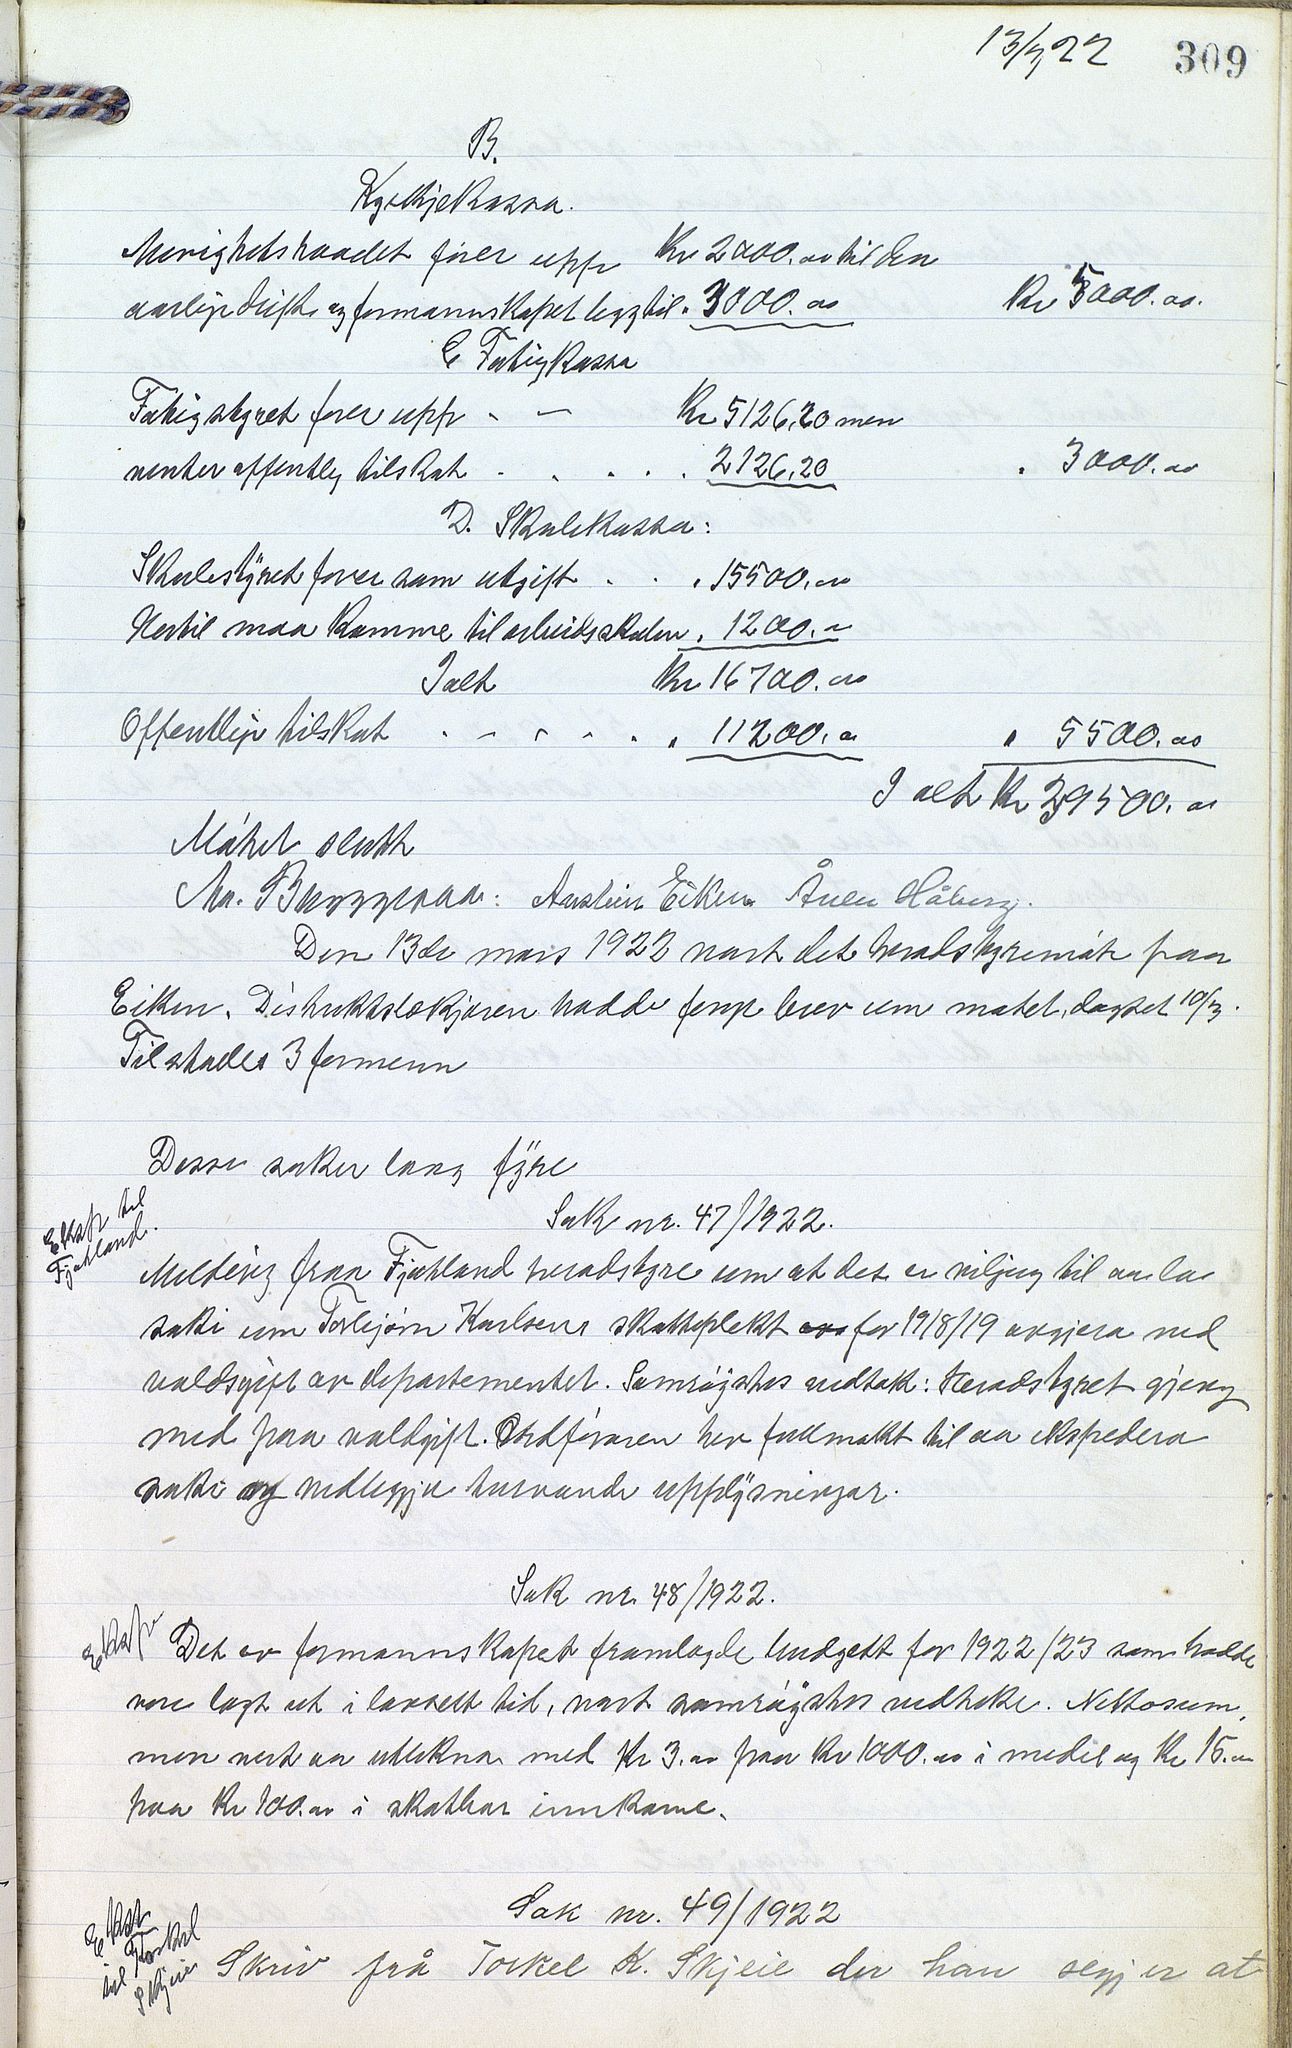 13/3 22 309
B.
Kyrkjekassa.
Menighetsraadet förer upp Kr 2000.00 til den
aarlige drift og formannskapet legg til " 3000.00 Kr 5000.00.
C Fatigkassa
Fatigstyret förer upp - - Kr 5126,20 men
venter offentleg tilskot . . . . 2126,20 " 3000.00
D. Skulekassa:
Skulestÿret förer som utgift . . " 15500.00
Hertil maa komme til arbeidsskulen " 1200.00
I alt Kr 16700.00
Offentlige tilskot . - - - . " 11200.00 " 5500.00
I alt Kr 29500.00
Mötet slutt
Aanen Håberg.
Den 13de mars 1922 vart det heradstyremöte paa
Eiken. Distriktslækjaren hadde fenge brev um mötet, dagset 10/3.
Tilstades 3 formenn
Desse saker laag fÿre
Ekssp til
Fjotland.
Sak nr. 47/1922.
Melding fraa Fjotland heradstyre um at det er viljug til aa la
saki um Torbjörn Karlsens skatteplikt for 1918/19 avgjera ved
valdgift av departementet. Samröystes vedtak: Heradstyret gjeng
med paa valdgift. Ordföraren hev fullmakt til aa ekspedera
saki og vedleggja turvande upplÿsningar.
Sak nr. 48/1922.
Eksp
Det av formannskapet framlagde budgett for 1922/23 som hadde
vore lagt ut i lovsett tid, vart samröystes vedteke. Nettosum
men vert aa utlikna med Kr 3.00 paa Kr 1000.00 i medel og Kr 15.00
paa Kr 100.00 i skattbar innkome.
Sak nr. 49/1922
Ekssp
til Torkel
Skjeie
Skriv frå Torkel K. Skjeie der han segjer at